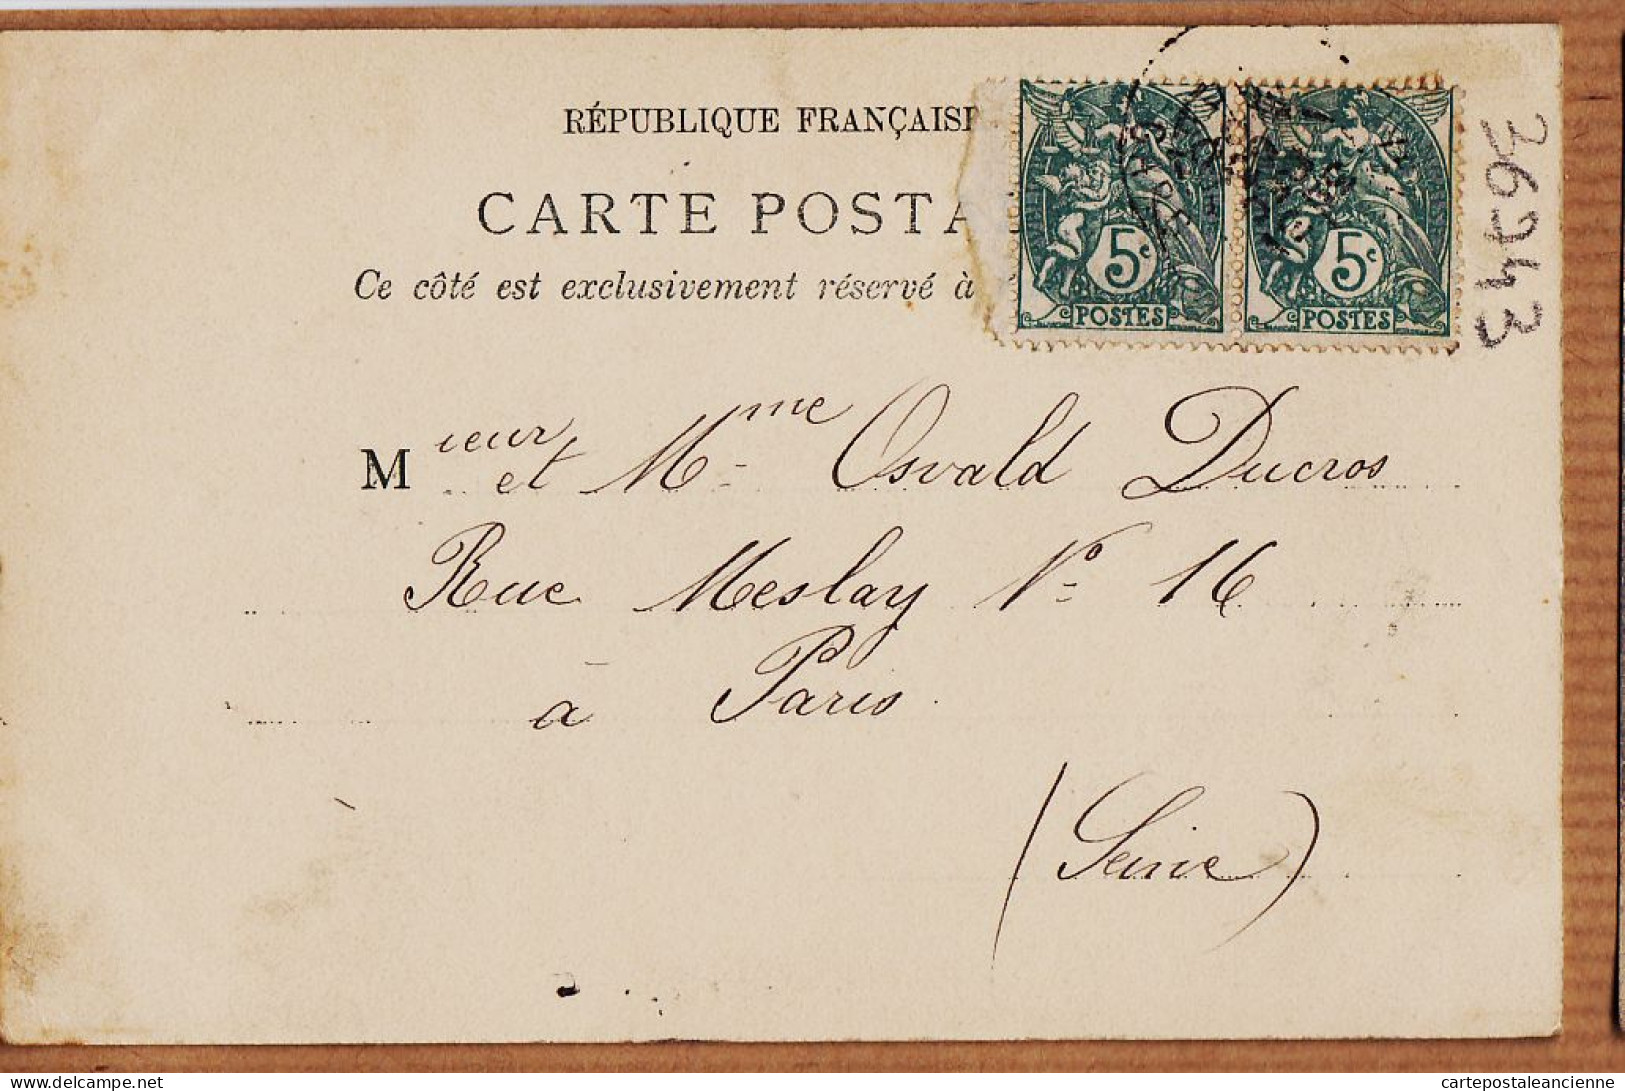 RÉPUBLIQUE FRANÇAIS
CARTE POSTA
Ce côté est exclusivement réservé à
5c
POSTES
5c
POSTES
36243
Mieur et Mme Osvald Ducros
Rue Meslay No 16
à Paris
(Seine)
delcampe.net
cartepostaleancienne